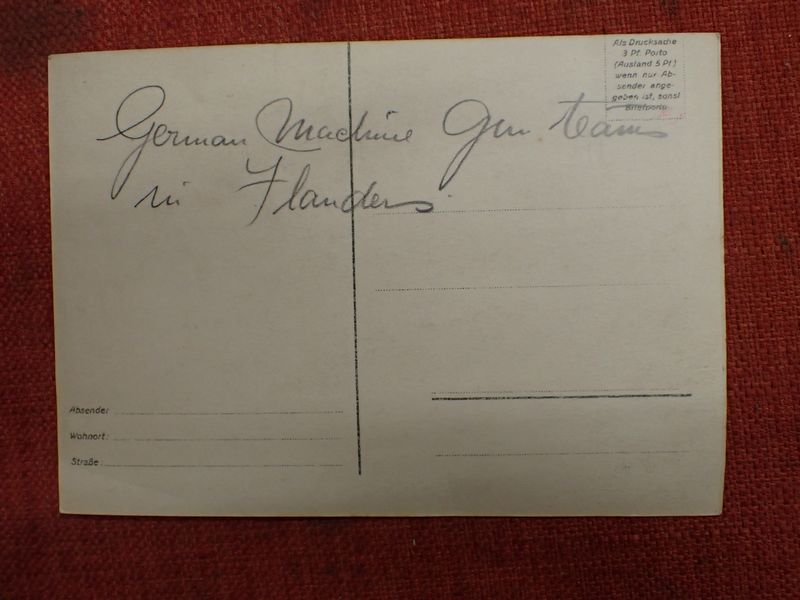 Als Drucksache
3 Pf. Porto
(Ausland 5 Pf.)
wenn nur Ab-
sender ange-
geben ist, sonst
Briefporto
German Machine Gun teams
in Flanders.
Absender
Wohnort:
Straße: